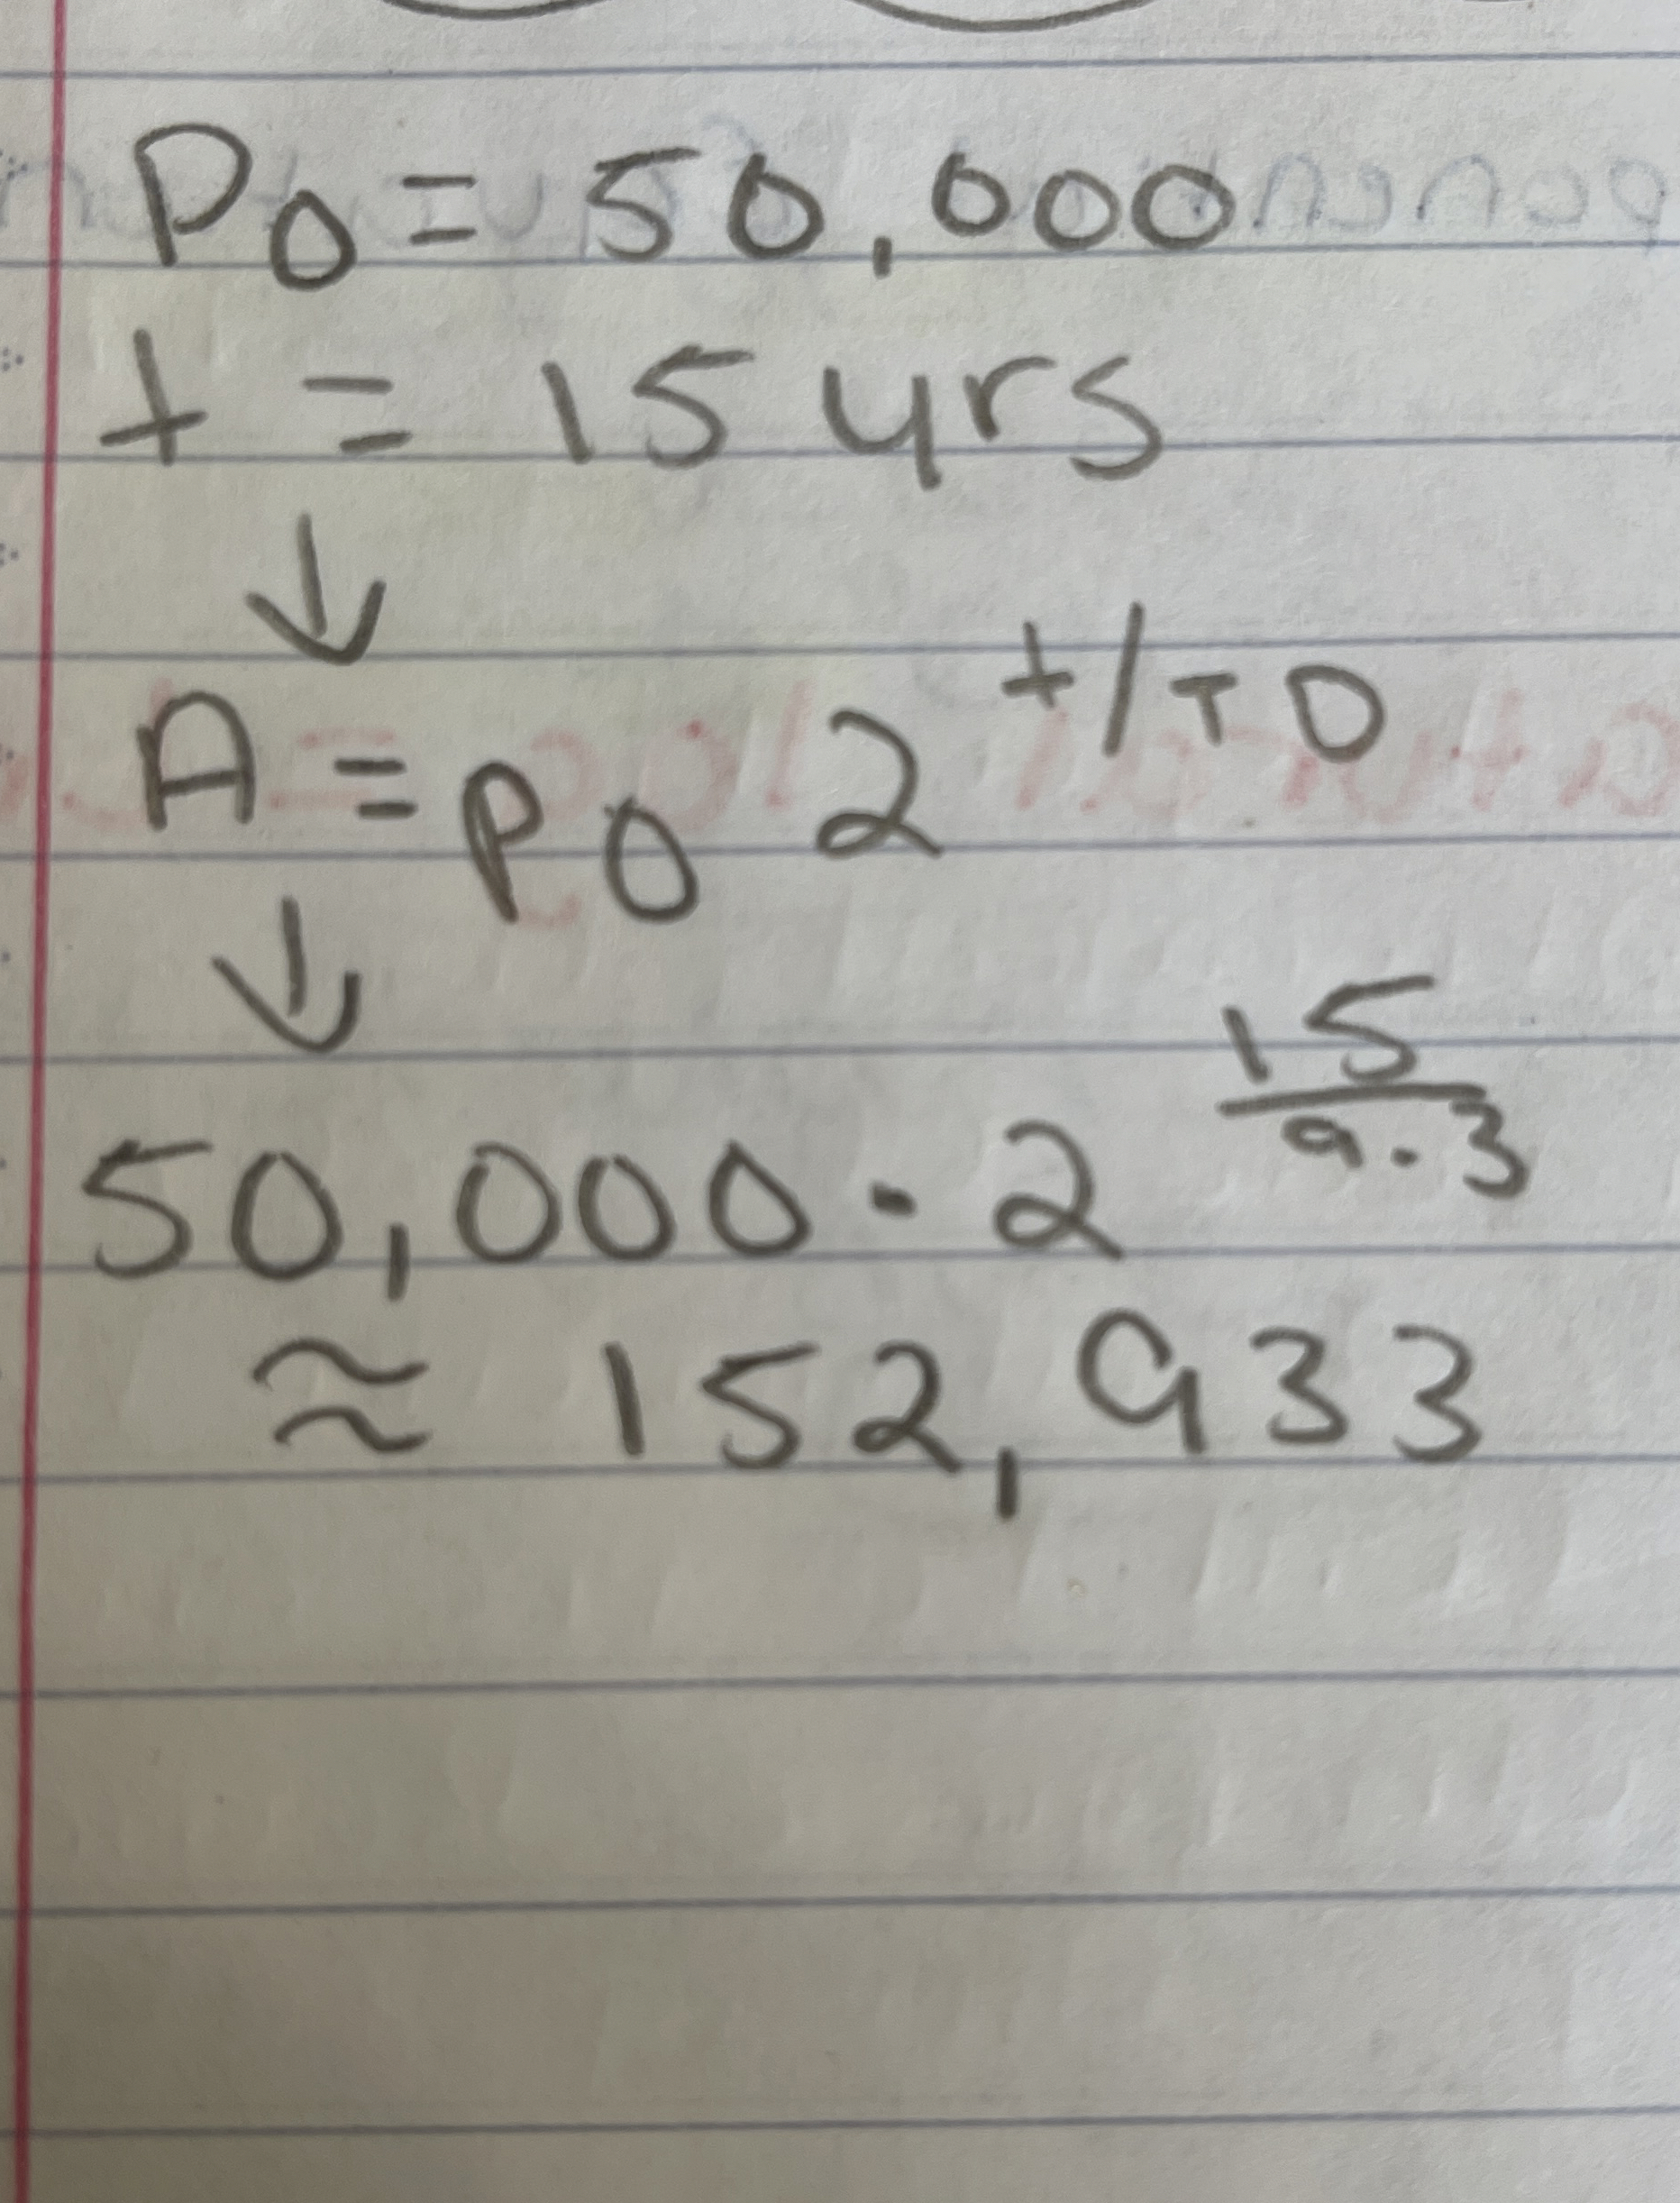 P0 = 50,000
t = 15 yrs
↓
A = P0 2^t/TD
↓
50,000 · 2^15/9.3
≈ 152,933